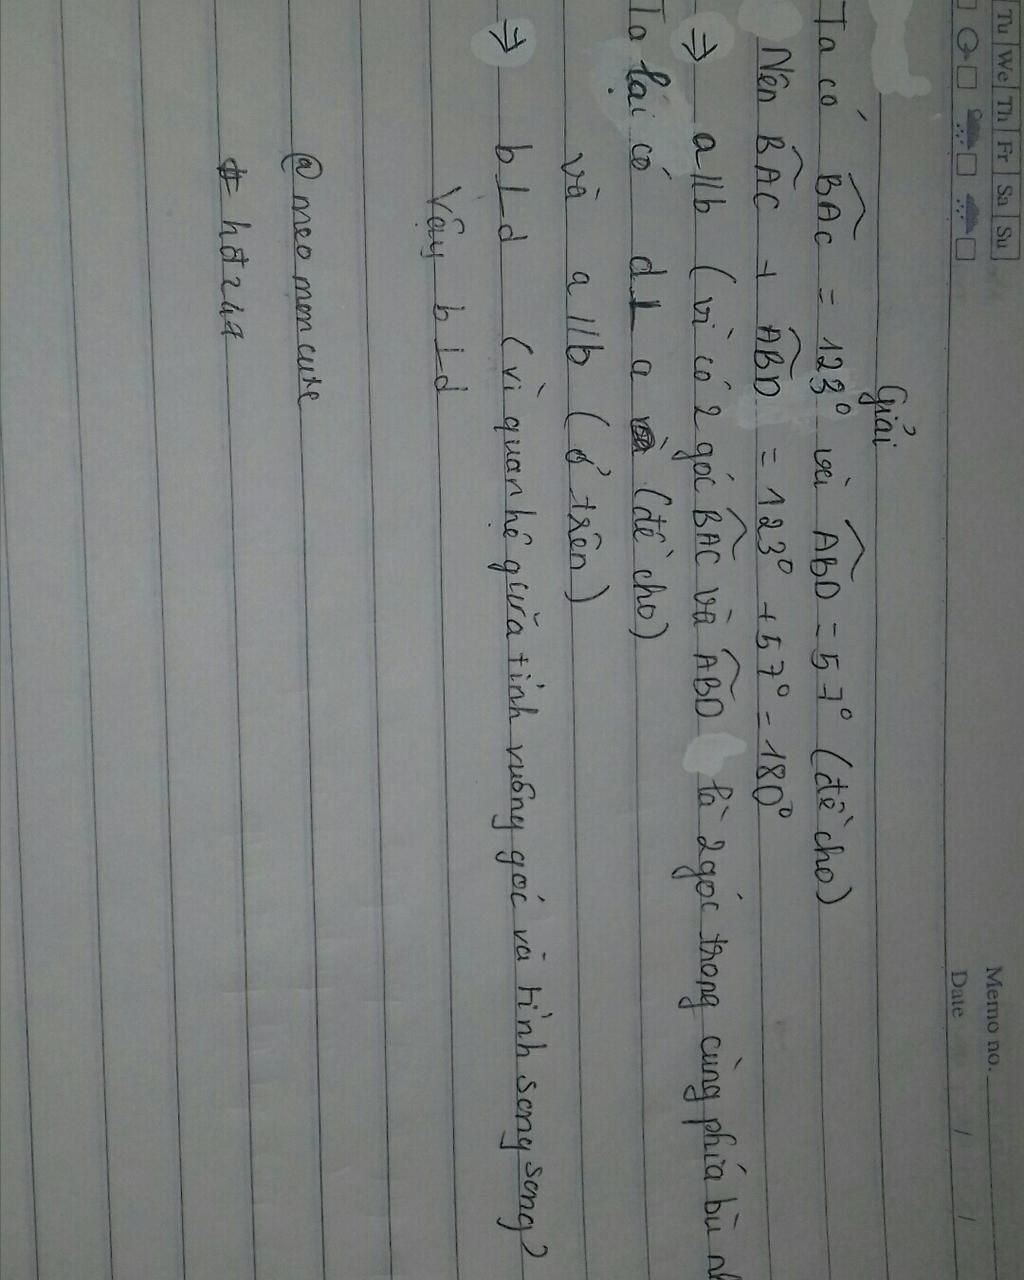 Memo no.
Tu We Th Fr Sa Su
Date / /
Giải
Ta có BAC = 123° và ABD = 57° (đề cho)
Nên BAC + ABD = 123° + 57° = 180°
⇒ a//b (vì có 2 góc BAC và ABD là 2 góc trong cùng phía bù nh
Ta lại có d⊥a (đề cho)
và a//b (ở trên)
⇒ b⊥d (vì quan hệ giữa tính vuông góc và tính song song)
Vậy b⊥d
@meomoncute
# hđ247